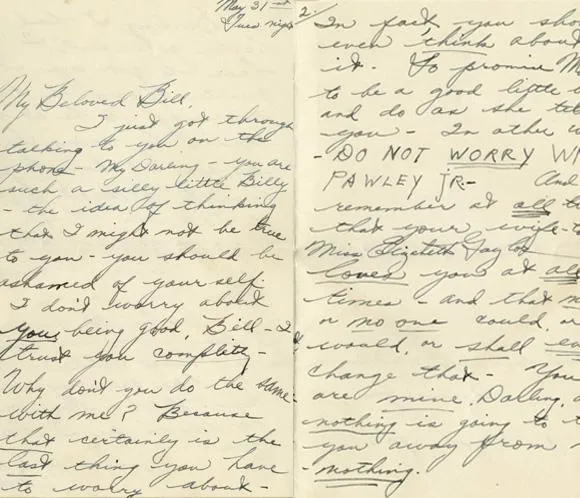 May 31st
Tues night
My Beloved Bill,
I just got through
talking to you on the
phone - My Darling - you are
such a silly little Billy
- the idea of thinking
that I might not be true
to you - you should be
ashamed of your self.
I don't worry about
you being good, Bill - I
trust you complitly -
Why don't you do the same
with me? Because
that certainly is the
last thing you have
to worry about -
2.
In fact, you sho
even think about
it. So promise M
to be a good little
and do as she tel
you - In other w
- DO NOT WORRY W
PAWLEY Jr. - And
remember at all t
that your wife-t
Miss Elizabeth Taylor
loves you at all
times - and that n
or no one could, or
would, or shall ev
change that - You
are mine, Darling, a
nothing is going to t
you away from m
- nothing.